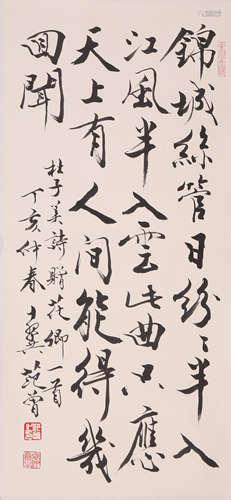 錦城絲管日紛〻半入
江風半入雲此曲只應
天上有人間能得幾
回聞
杜子美詩贈花卿一首
丁亥仲春十翼范曾